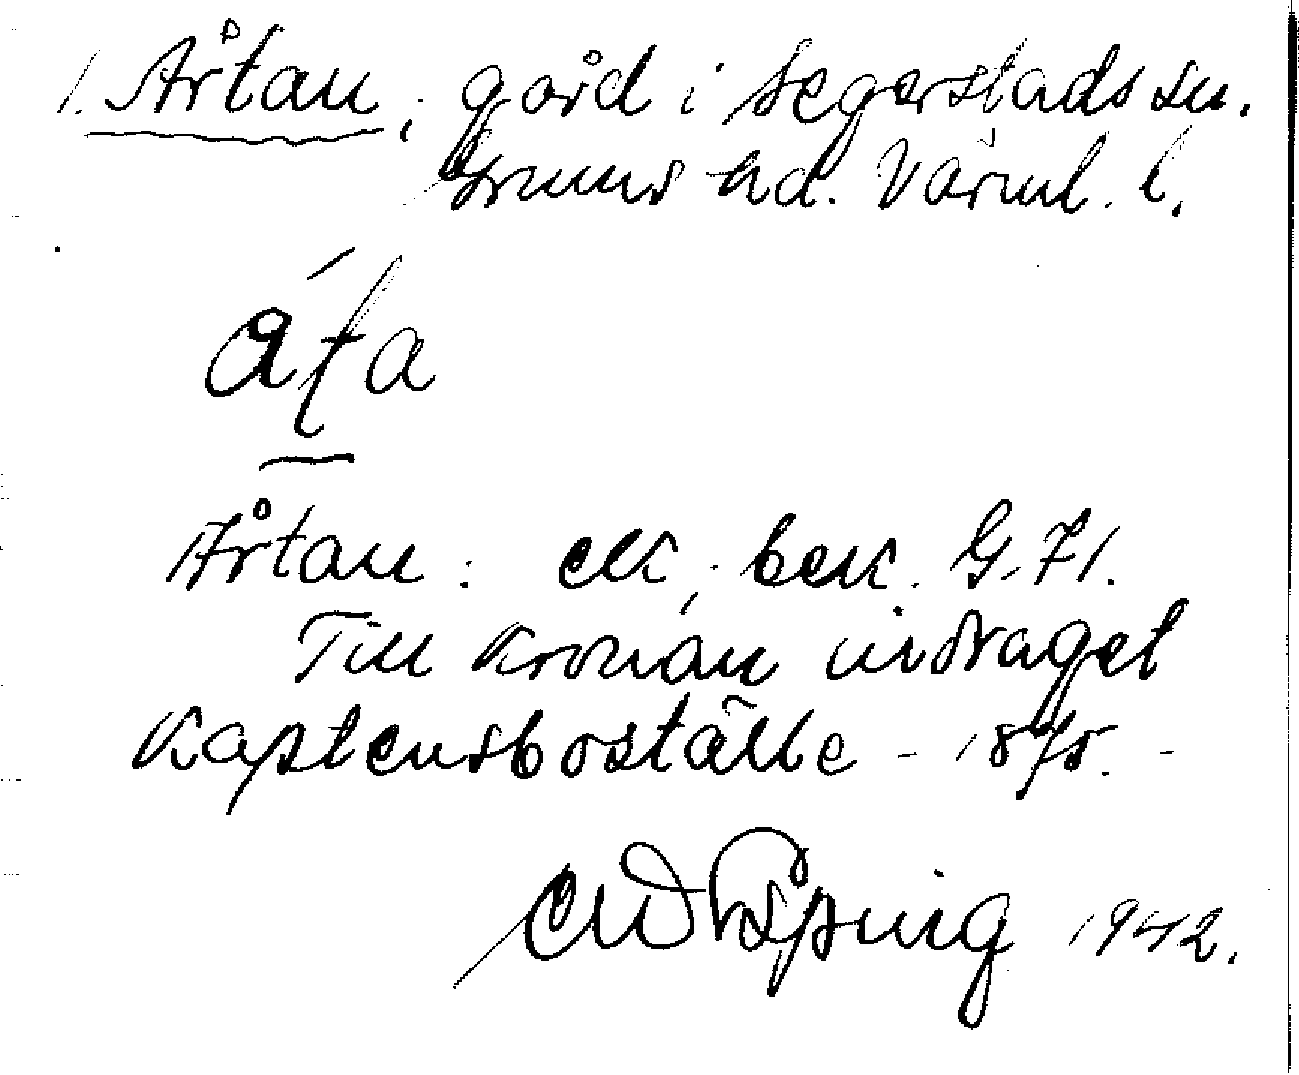 1. Årtan, gård i Segerstads sn.
Grums hd. Värml. l.
Årtan: ek. berk. G. 71.
Till Kronan indraget
Kaptensboställe - 1875. -
1942.